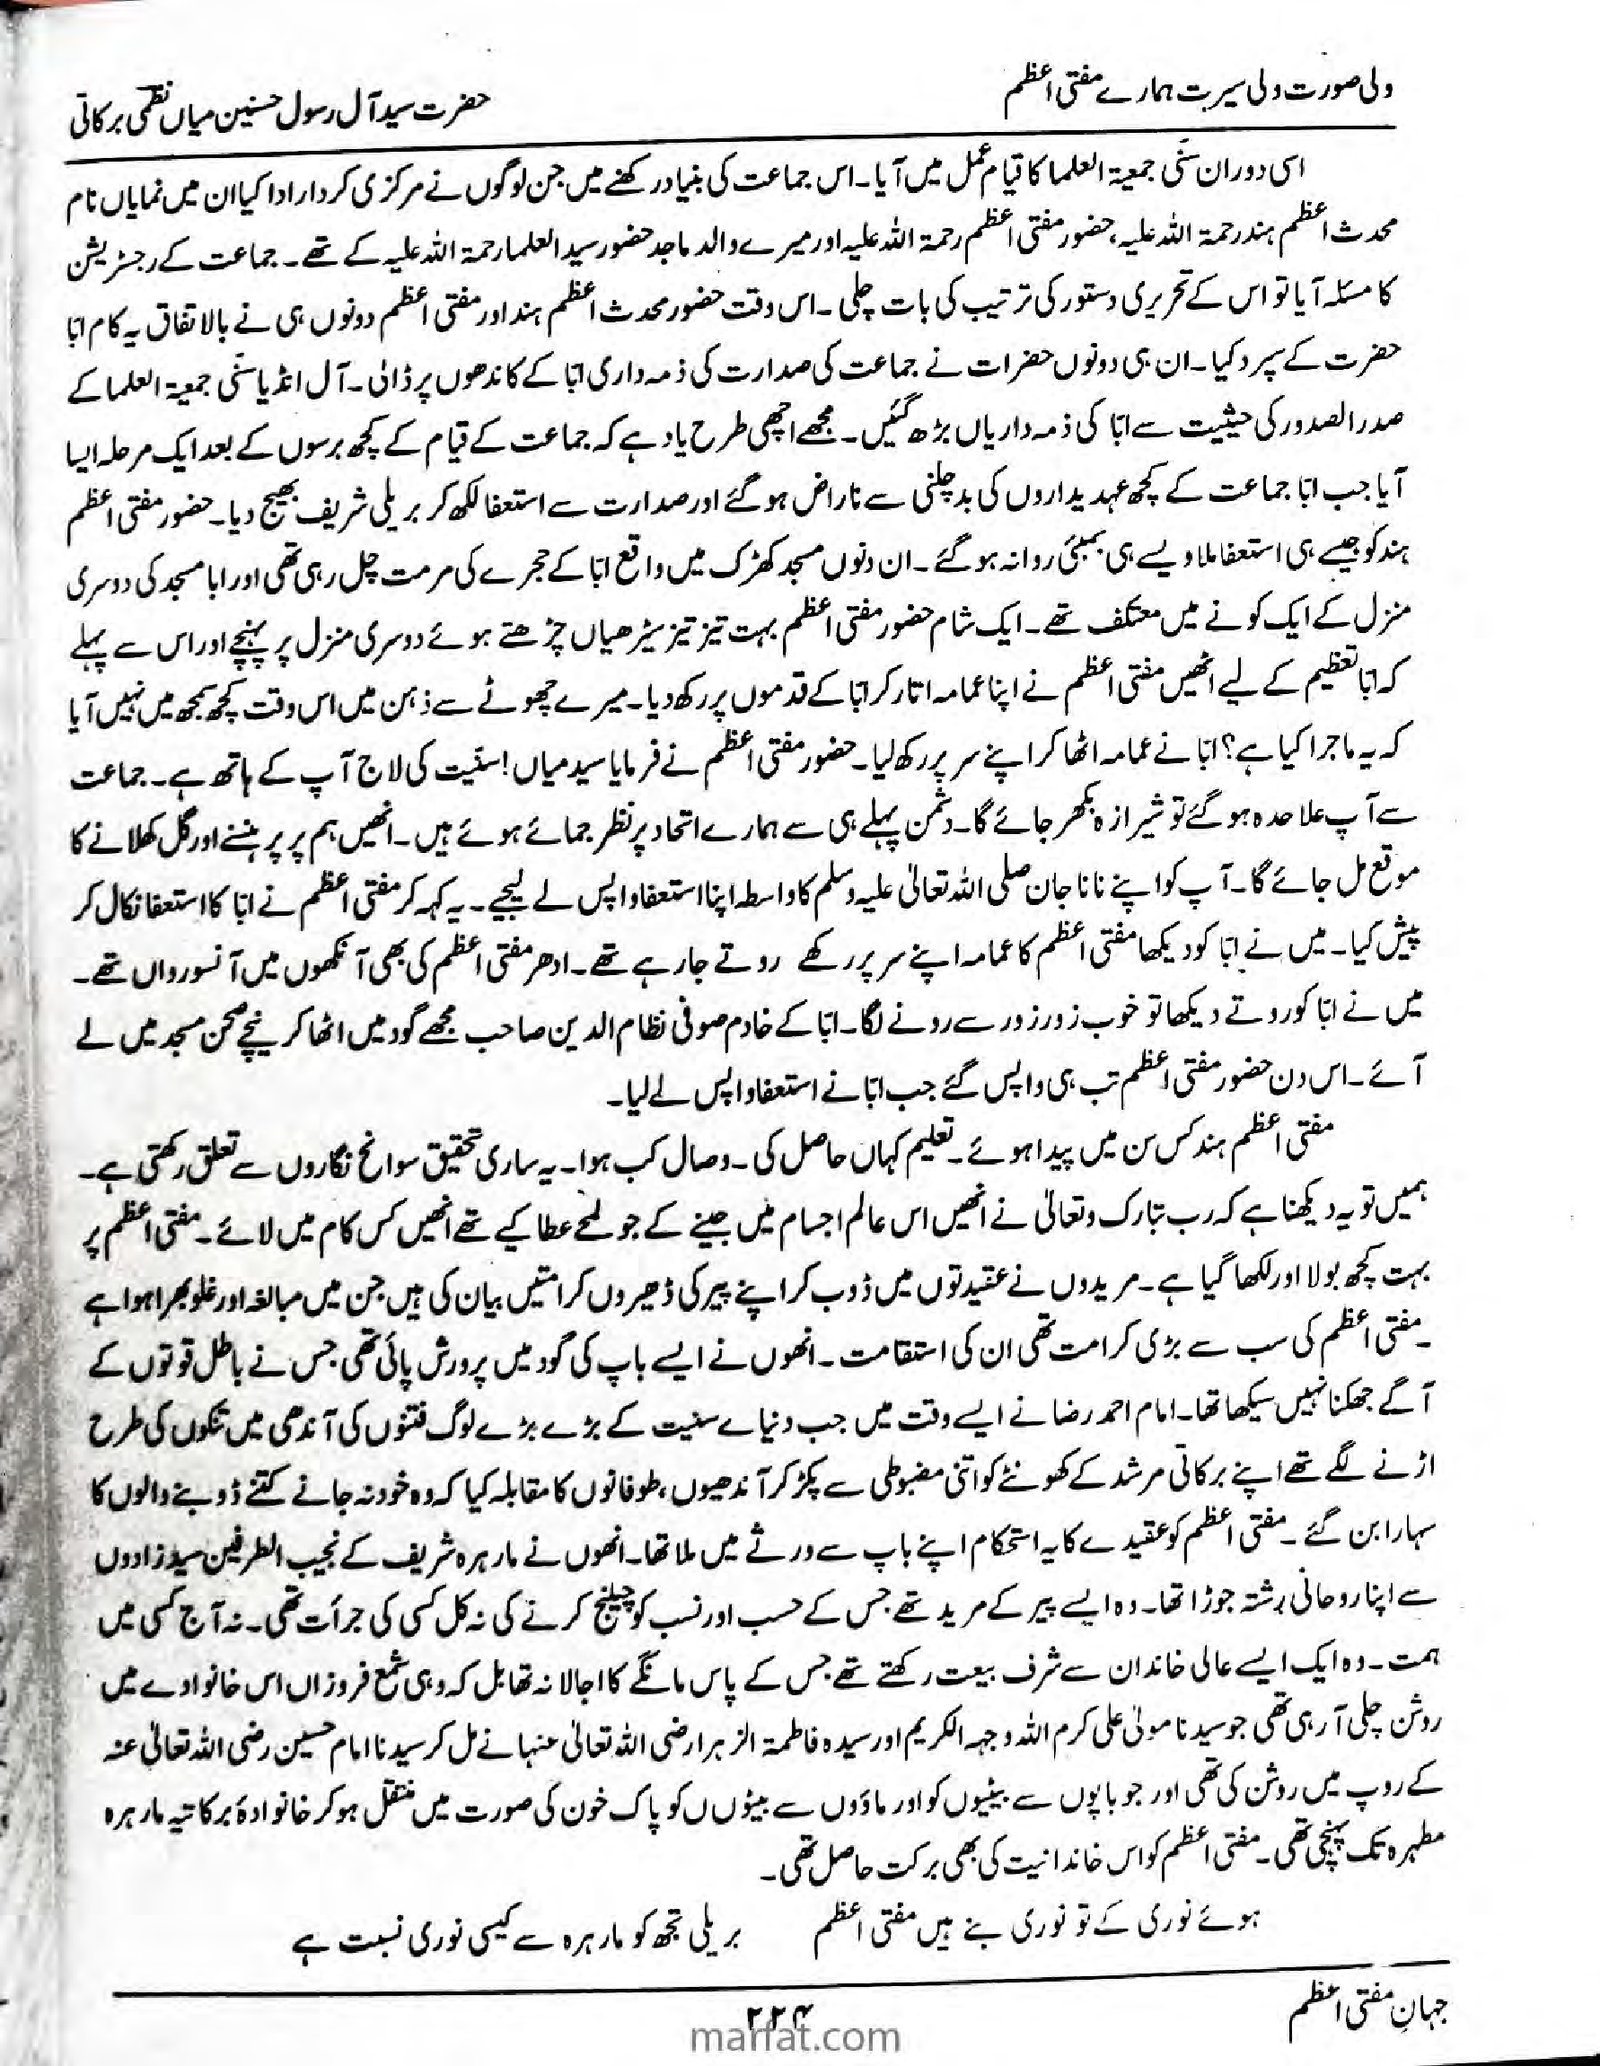 ولی صورت ولی سیرت ہمارے مفتی اعظم
حضرت سید آل رسول حسنین میاں نظمی برکاتی
اسی دوران سنّی جمعیۃ العلما کا قیام عمل میں آیا۔ اس جماعت کی بنیاد رکھنے میں جن لوگوں نے مرکزی کردار ادا کیا ان میں نمایاں نام
محدث اعظم ہند رحمۃ اللہ علیہ، حضور مفتی اعظم رحمۃ اللہ علیہ اور میرے والد ماجد حضور سید العلما رحمۃ اللہ علیہ کے تھے۔ جماعت کے رجسٹریشن
کا مسئلہ آیا تو اس کے تحریری دستور کی ترتیب کی بات چلی۔ اس وقت حضور محدث اعظم ہند اور مفتی اعظم دونوں ہی نے بالاتفاق یہ کام ابّا
حضرت کے سپرد کیا۔ ان ہی دونوں حضرات نے جماعت کی صدارت کی ذمہ داری ابّا کے کاندھوں پر ڈالی۔ آل انڈیا سنّی جمعیۃ العلما کے
صدر الصدور کی حیثیت سے ابّا کی ذمہ داریاں بڑھ گئیں۔ مجھے اچھی طرح یاد ہے کہ جماعت کے قیام کے کچھ برسوں کے بعد ایک مرحلہ ایسا
آیا جب ابّا جماعت کے کچھ عہدیداروں کی بدچلنی سے ناراض ہو گئے اور صدارت سے استعفا لکھ کر بریلی شریف بھیج دیا۔ حضور مفتی اعظم
ہند کو جیسے ہی استعفا ملا ویسے ہی بمبئی روانہ ہو گئے۔ ان دنوں مسجد کھڑک میں واقع ابّا کے حجرے کی مرمت چل رہی تھی اور ابا مسجد کی دوسری
منزل کے ایک کونے میں معتکف تھے۔ ایک شام حضور مفتی اعظم بہت تیز تیز سیڑھیاں چڑھتے ہوئے دوسری منزل پر پہنچے اور اس سے پہلے
کہ ابّا تعظیم کے لیے اٹھیں مفتی اعظم نے اپنا عمامہ اتار کر ابّا کے قدموں پر رکھ دیا۔ میرے چھوٹے سے ذہن میں اس وقت کچھ سمجھ میں نہیں آیا
کہ یہ ماجرا کیا ہے؟ ابّا نے عمامہ اٹھا کر اپنے سر پر رکھ لیا۔ حضور مفتی اعظم نے فرمایا سید میاں! سنّیت کی لاج آپ کے ہاتھ ہے۔ جماعت
سے آپ علاحدہ ہو گئے تو شیرازہ بکھر جائے گا۔ دشمن پہلے ہی سے ہمارے اتحاد پر نظر جمائے ہوئے ہیں۔ انھیں ہم پر پر ہنسنے اور گل کھلانے کا
موقع مل جائے گا۔ آپ کو اپنے نانا جان صلی اللہ تعالیٰ علیہ وسلم کا واسطہ اپنا استعفا واپس لے لیجیے۔ یہ کہہ کر مفتی اعظم نے ابّا کا استعفا نکال کر
پیش کیا۔ میں نے ابّا کو دیکھا مفتی اعظم کا عمامہ اپنے سر پر رکھے روتے جارہے تھے۔ ادھر مفتی اعظم کی بھی آنکھوں میں آنسو رواں تھے۔
میں نے ابّا کو روتے دیکھا تو خوب زور زور سے رونے لگا۔ ابّا کے خادم صوفی نظام الدین صاحب مجھے گود میں اٹھا کر نیچے صحن مسجد میں لے
آئے۔ اس دن حضور مفتی اعظم تب ہی واپس گئے جب ابّا نے استعفا واپس لے لیا۔
مفتی اعظم ہند کس سن میں پیدا ہوئے۔ تعلیم کہاں حاصل کی۔ وصال کب ہوا۔ یہ ساری تحقیق سوانح نگاروں سے تعلق رکھتی ہے۔
ہمیں تو یہ دیکھنا ہے کہ رب تبارک وتعالیٰ نے انھیں اس عالم اجسام میں جینے کے جو لمحے عطا کیے تھے انھیں کس کام میں لائے۔ مفتی اعظم پر
بہت کچھ بولا اور لکھا گیا ہے۔ مریدوں نے عقیدتوں میں ڈوب کر اپنے پیر کی ڈھیروں کرامتیں بیان کی ہیں جن میں مبالغہ اور غلو بھرا ہوا ہے
۔ مفتی اعظم کی سب سے بڑی کرامت تھی ان کی استقامت۔ انھوں نے ایسے باپ کی گود میں پرورش پائی تھی جس نے باطل قوتوں کے
آگے جھکنا نہیں سیکھا تھا۔ امام احمد رضا نے ایسے وقت میں جب دنیاے سنیت کے بڑے بڑے لوگ فتنوں کی آندھی میں تنکوں کی طرح
اڑنے لگے تھے اپنے برکاتی مرشد کے کھونٹے کو اتنی مضبوطی سے پکڑ کر آندھیوں، طوفانوں کا مقابلہ کیا کہ وہ خود نہ جانے کتنے ڈوبنے والوں کا
سہارا بن گئے۔ مفتی اعظم کو عقیدے کا یہ استحکام اپنے باپ سے ورثے میں ملا تھا۔ انھوں نے مارہرہ شریف کے نجیب الطرفین سیدزادوں
سے اپنا روحانی رشتہ جوڑا تھا۔ وہ ایسے پیر کے مرید تھے جس کے حسب اور نسب کو چیلنج کرنے کی نہ کل کسی کی جرأت تھی۔ نہ آج کسی میں
ہمت۔ وہ ایک ایسے عالی خاندان سے شرف بیعت رکھتے تھے جس کے پاس مانگے کا اجالا نہ تھا بل کہ وہی شمع فروزاں اس خانوادے میں
روشن چلی آرہی تھی جو سیدنا مولیٰ علی کرم اللہ وجہہ الکریم اور سیدہ فاطمۃ الزہرا رضی اللہ تعالیٰ عنہا نے مل کر سیدنا امام حسین رضی اللہ تعالیٰ عنہ
کے روپ میں روشن کی تھی اور جو باپوں سے بیٹیوں کو اور ماؤوں سے بیٹوں ں کو پاک خون کی صورت میں منتقل ہو کر خانوادۂ برکاتیہ مارہرہ
مطہرہ تک پہنچی تھی۔ مفتی اعظم کو اس خاندانیت کی بھی برکت حاصل تھی۔
ہوئے نوری کے تو نوری بنے ہیں مفتی اعظم بریلی تجھ کو مارہرہ سے کیسی نوری نسبت ہے
جہانِ مفتی اعظم
۲۲۴
marfat.com